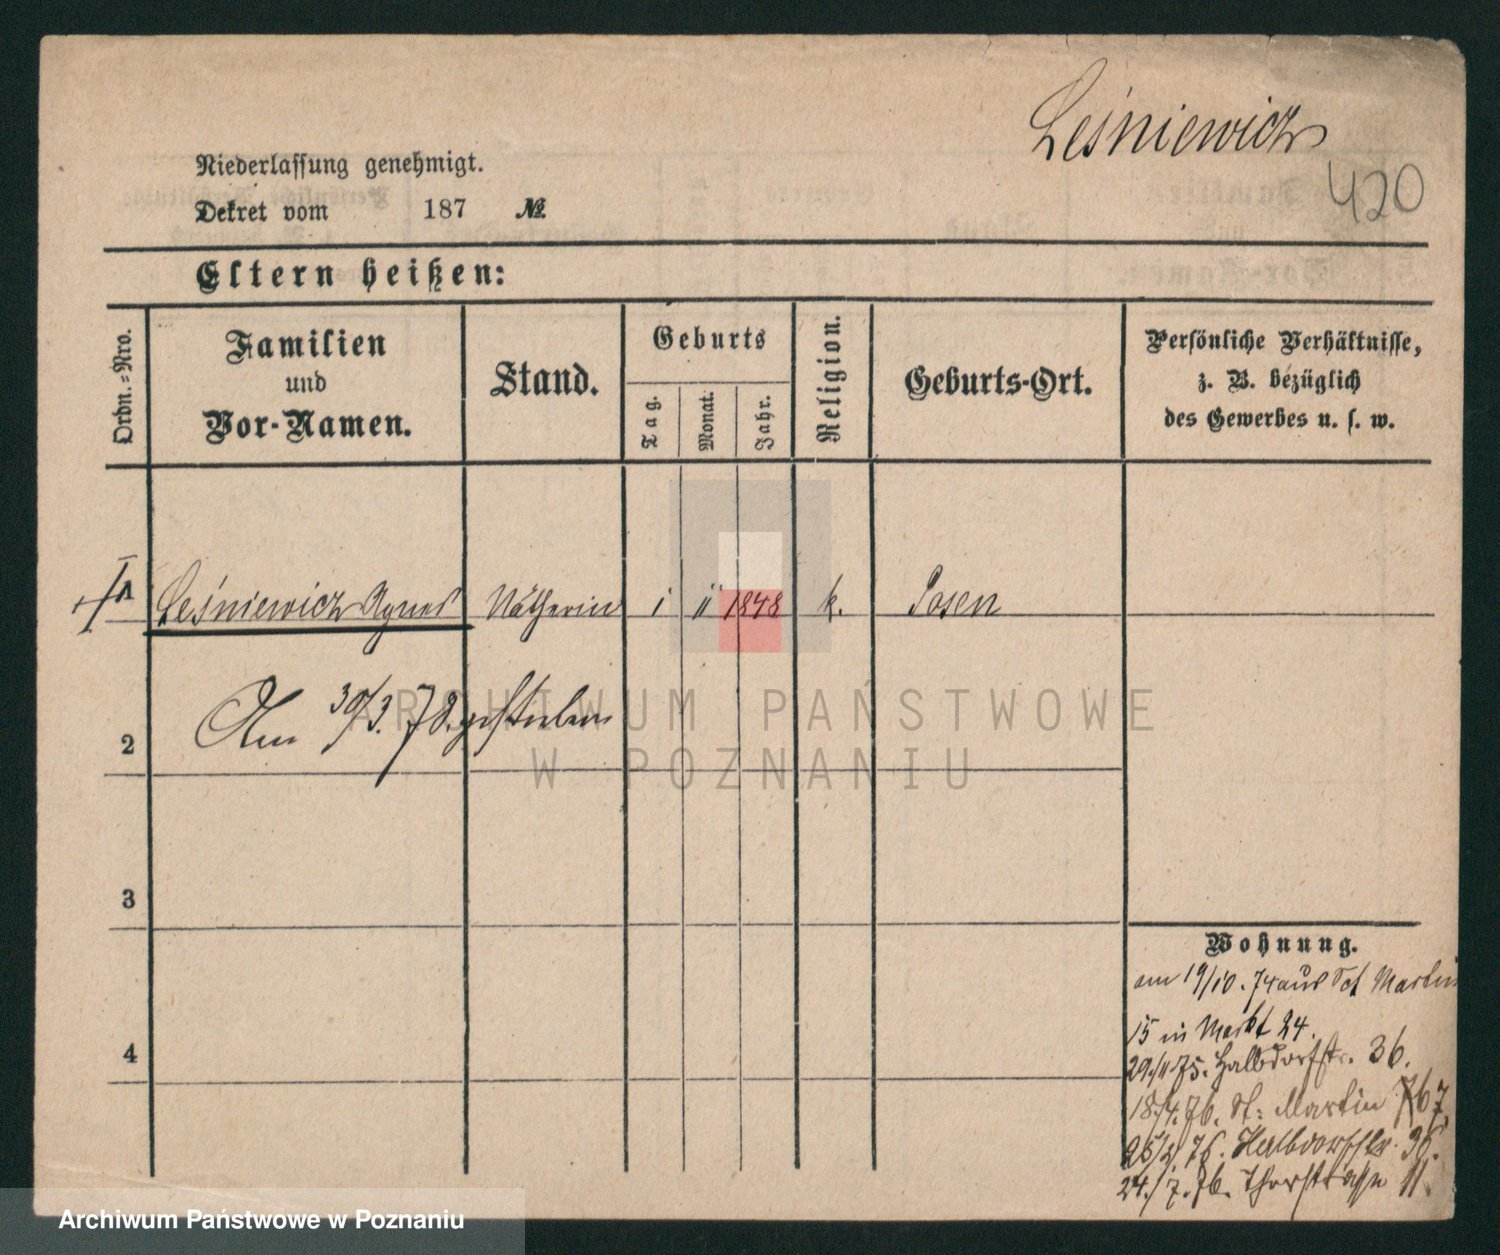 Leśniewicz
420
Niederlassung genehmigt.
Dekret vom 187 №
Eltern heißen:
Ordn.=Nro.
Familien
und
Vor-Namen.
Stand.
Geburts
Tag.
Monat.
Jahr.
Religion.
Geburts-Ort.
Persönliche Verhältnisse,
z. B. bezüglich
des Gewerbes u. s. w.
1 Leśniewicz Agnes Nätherin i ii 1848 k. Posen
Am 30/3. 78. gestorben
2
3
4
Wohnung.
am 19/10. 74 aus Sct Martin
15 in Markt 24.
29./11 75. Halbdorfstr. 36.
18/4. 76. St: Martin 67
Halbdorfstr. 36.
24./7. 76. Thorstraße 11.
ARCHIWUM PAŃSTWOWE
W POZNANIU
Archiwum Państwowe w Poznaniu